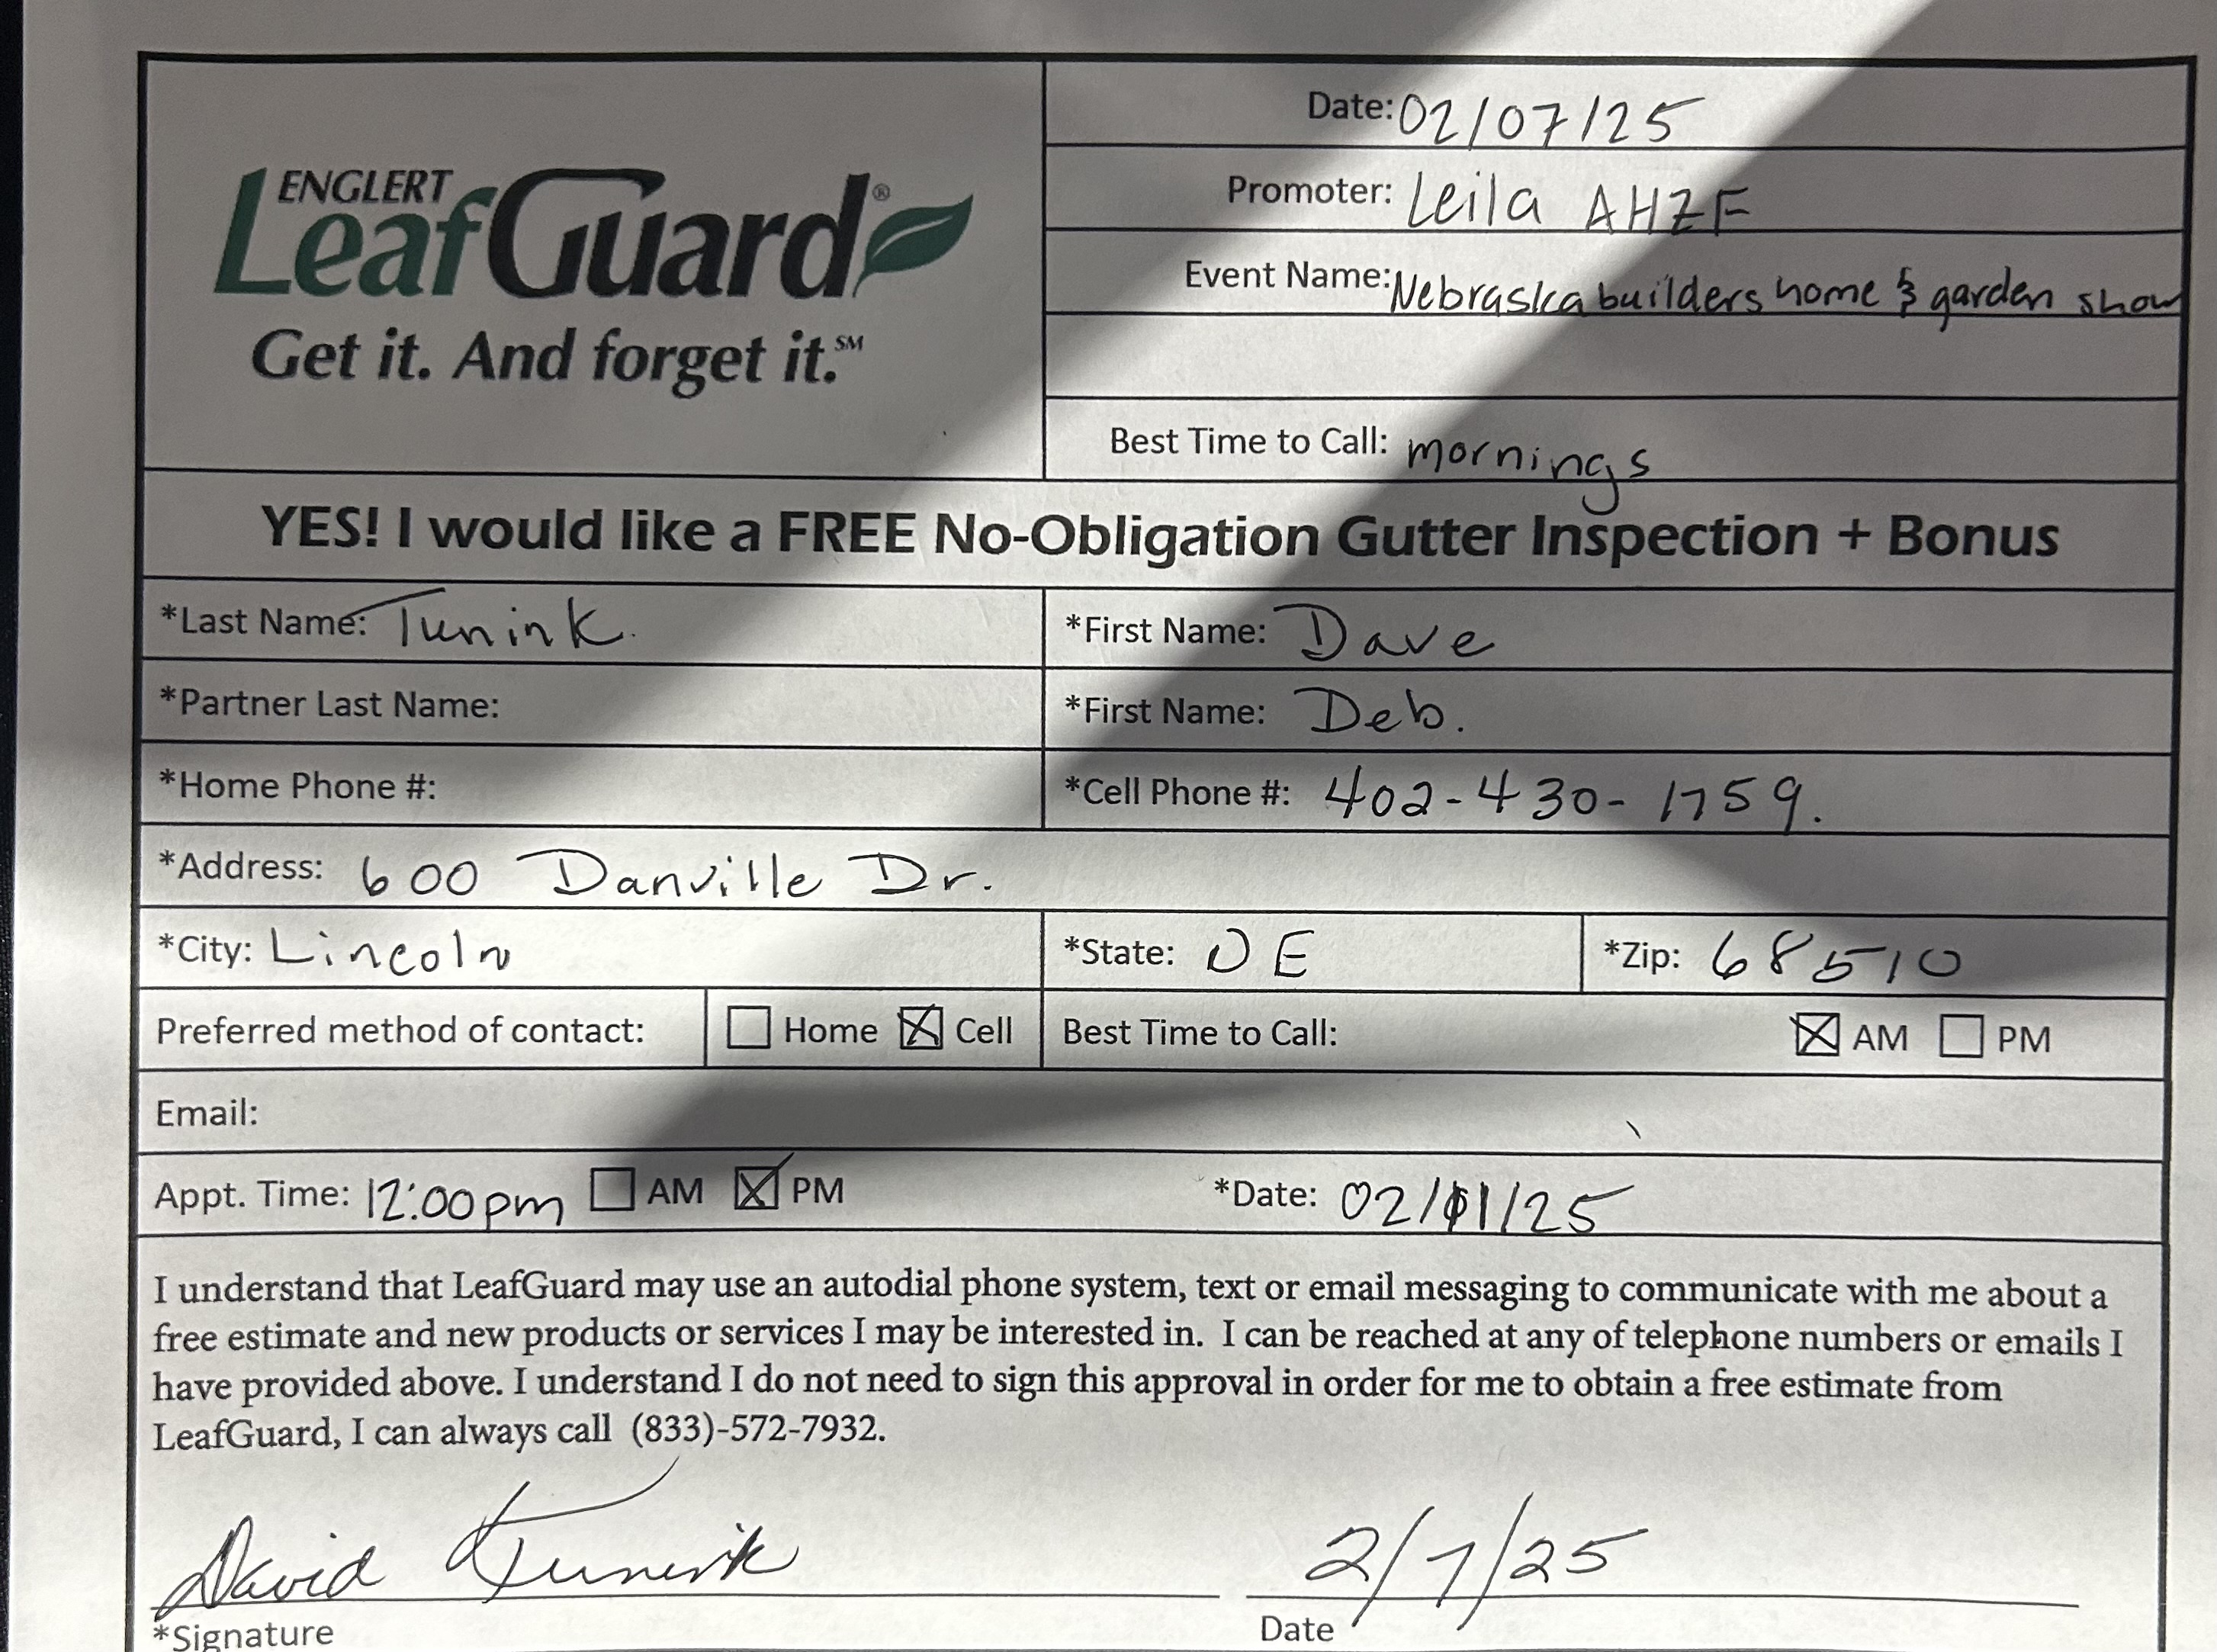 Date: 02/07/25
ENGLERT
LeafGuard®
Get it. And forget it.℠
Promoter: Leila AHZF
Event Name: Nebraska builders home & garden show
Best Time to Call: mornings
YES! I would like a FREE No-Obligation Gutter Inspection + Bonus
*Last Name: Tunink. *First Name: Dave
*Partner Last Name: *First Name: Deb.
*Home Phone #: *Cell Phone #: 402-430-1759.
*Address: 600 Danville Dr.
*City: Lincoln *State: NE *Zip: 68510
Preferred method of contact: ☐ Home ☒ Cell Best Time to Call: ☒ AM ☐ PM
Email:
Appt. Time: 12:00pm ☐ AM ☒ PM *Date: 02/11/25
I understand that LeafGuard may use an autodial phone system, text or email messaging to communicate with me about a
free estimate and new products or services I may be interested in. I can be reached at any of telephone numbers or emails I
have provided above. I understand I do not need to sign this approval in order for me to obtain a free estimate from
LeafGuard, I can always call (833)-572-7932.
David Tunink 2/7/25
*Signature Date